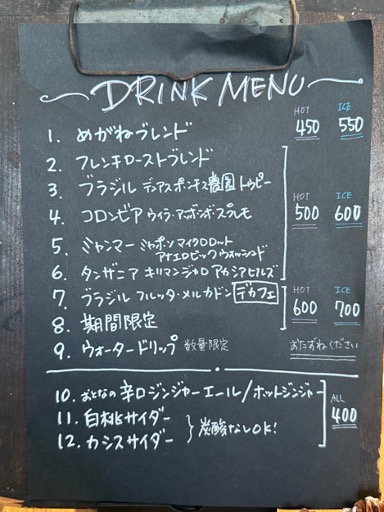 DRINK MENU
HOT ICE
1. めがねブレンド 450 550
2. フレンチローストブレンド
3. ブラジル デアスポンチス農園 トゥピー
HOT ICE
4. コロンビア ウィラ・アッボンボ・スプレモ 500 600
5. ミャンマー ジャポン マイクロロット
アナエロビック ウォッシュド
6. タンザニア キリマンジャロ アカシアヒルズ
HOT ICE
7. ブラジル フルッタ・メルカドン デカフェ
600 700
8. 期間限定
9. ウォータードリップ 数量限定 おたずねください
10. おとなの辛口ジンジャーエール/ホットジンジャー
ALL
400
11. 白桃サイダー
炭酸なしOK!
12. カシスサイダー